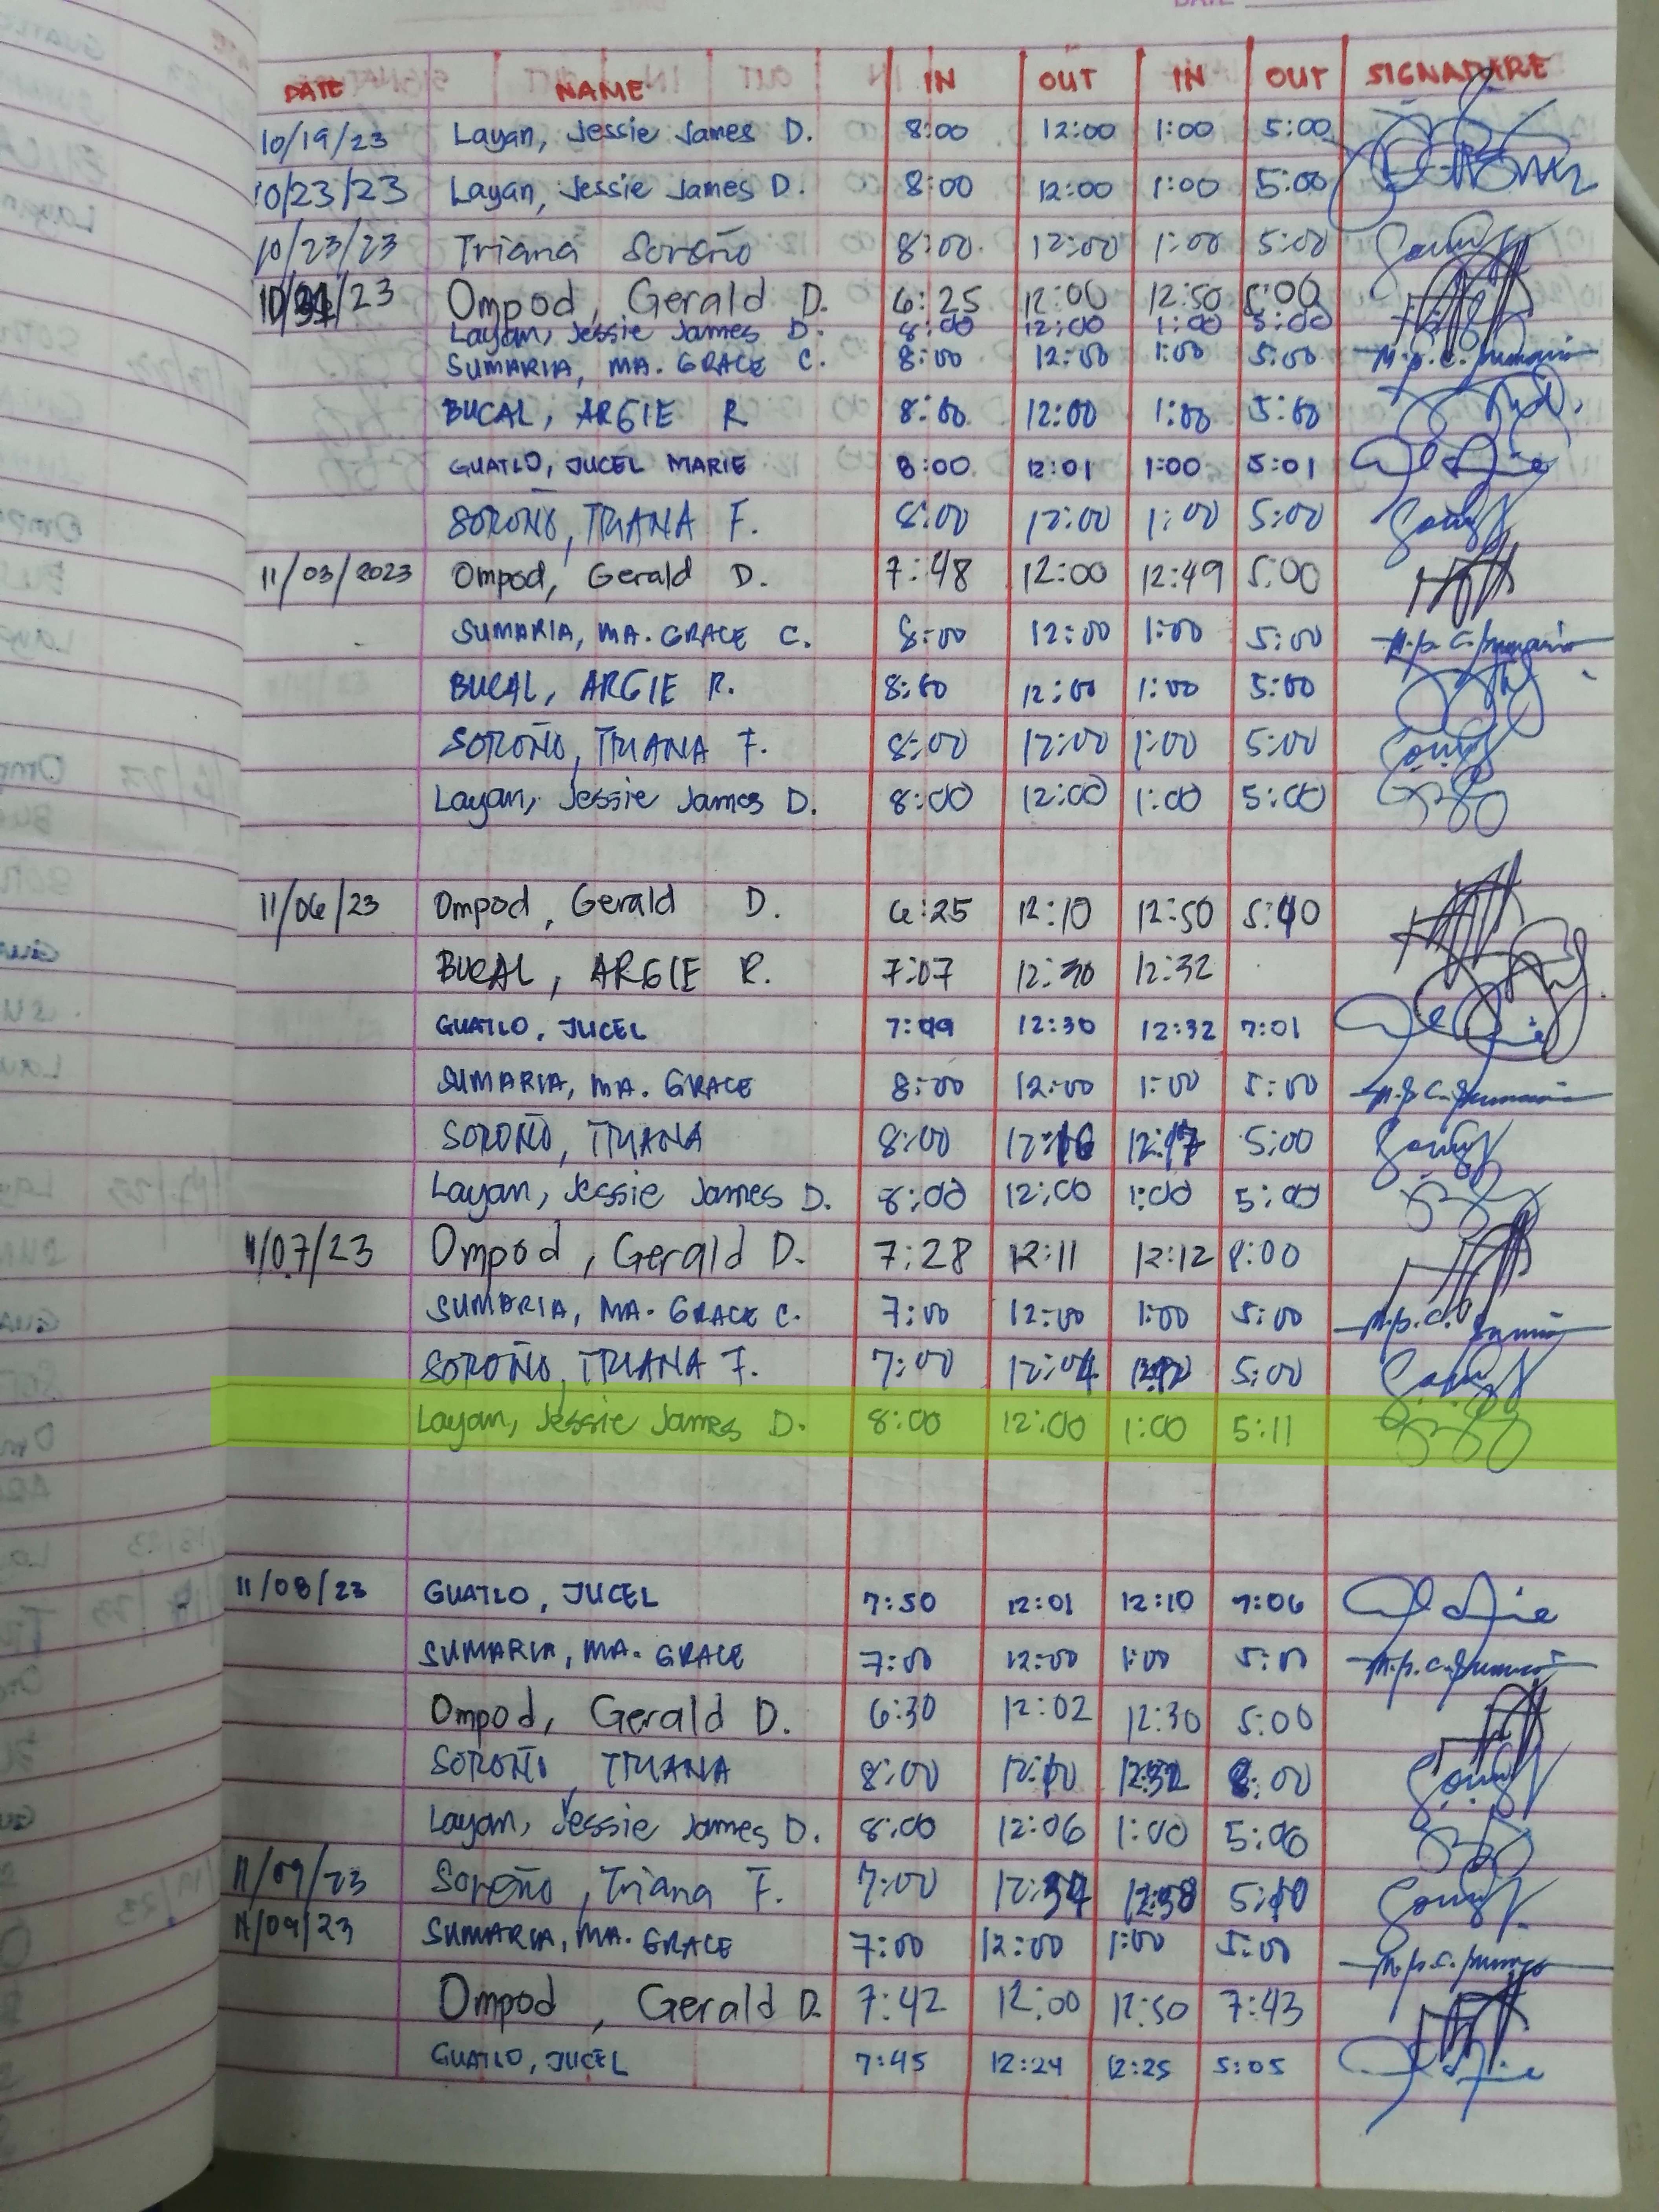 DATE
DATE NAME IN OUT IN OUT SIGNADARE
10/19/23 Layan, Jessie James D. 8:00 12:00 1:00 5:00
10/23/23 Layan, Jessie James D. 8:00 12:00 1:00 5:00
10/23/23 Triana Soroño 8:00 12:00 1:00 5:00
/23 Ompod, Gerald D. 6:25 12:00 12:50 5:00
Layan, Jessie James D. 8:00 12:00 1:00 5:00
SUMARIA, MA. GRACE C. 8:00 12:00 1:00 5:00
BUCAL, ARGIE R 8:00 12:00 1:00 5:00
GUATLO, JUCEL MARIE 8:00 12:01 1:00 5:01
SOROÑO, TRIANA F. 8:00 12:00 1:00 5:00
11/03/2023 Ompod, Gerald D. 7:48 12:00 12:49 5:00
SUMARIA, MA. GRACE C. 8:00 12:00 1:00 5:00
BUCAL, ARGIE R. 8:00 12:00 1:00 5:00
SOROÑO, TRIANA F. 8:00 12:00 1:00 5:00
Layan, Jessie James D. 8:00 12:00 1:00 5:00
11/06/23 Ompod, Gerald D. 6:25 12:10 12:50
BUCAL, ARGIE R. 7:07 12:30 12:32
GUATLO, JUCEL 7:09 12:30 12:32 7:01
SUMARIA, MA. GRACE 8:00 12:00 1:00 5:00
SOROÑO, TRIANA 8:00 12:16 12:17 5:00
Layan, Jessie James D. 8:00 12:00 1:00 5:00
11/07/23 Ompod, Gerald D. 7:28 12:11 12:12 8:00
SUMARIA, MA. GRACE C. 7:00 12:00 1:00 5:00
SOROÑO, TRIANA F. 7:00 12:04 5:00
Layan, Jessie James D. 8:00 12:00 1:00 5:11
11/08/23 GUATLO, JUCEL 7:50 12:01 12:10 7:06
SUMARIA, MA. GRACE 7:00 12:00 1:00 5:00
Ompod, Gerald D. 6:30 12:02 12:30 5:00
SOROÑO, TRIANA 8:00 12:10 12:32 8:00
Layan, Jessie James D. 8:00 12:06 1:00 5:06
11/09/23 Soroño, Triana F. 7:00 5:10
11/09/23 SUMARIA, MA. GRACE 7:00 12:00 1:00 5:00
Ompod, Gerald D. 7:42 12:00 12:50 7:43
GUATLO, JUCEL 7:45 12:24 12:25 5:05